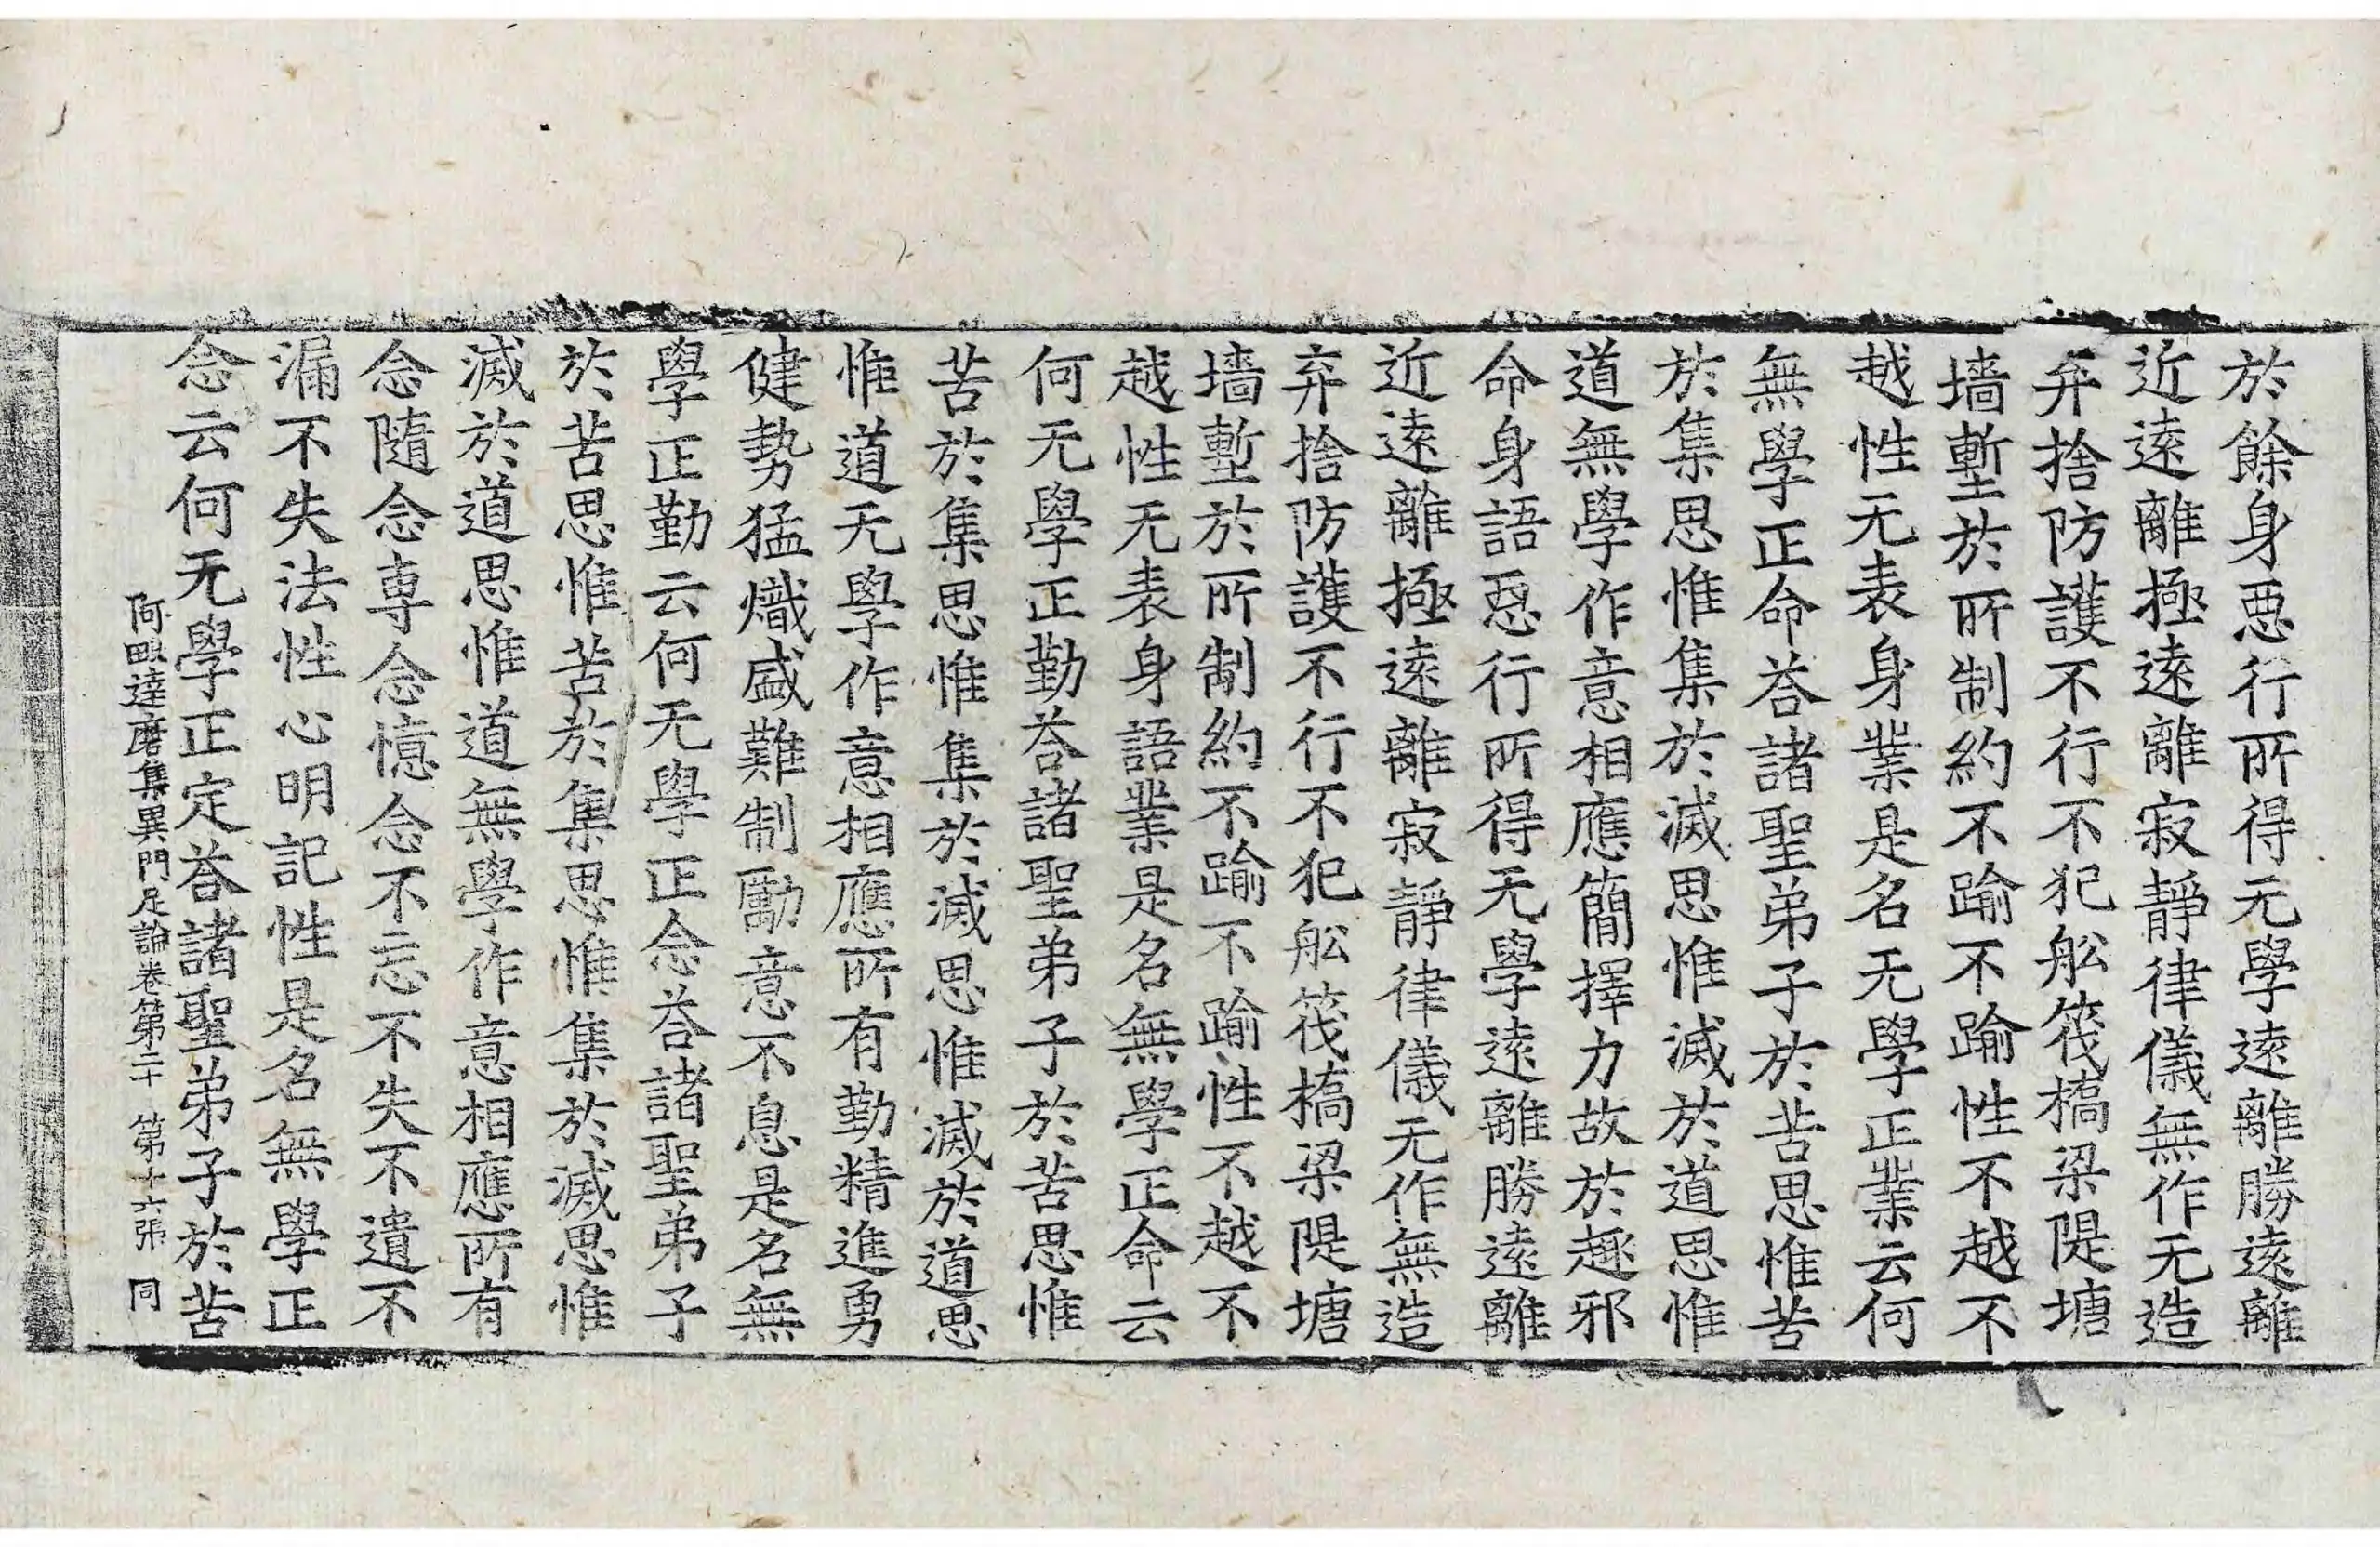 於餘身惡行所得无學遠離勝遠離
近遠離極遠離寂靜律儀無作无造
弃捨防護不行不犯舩筏橋梁隄塘
墻塹於所制約不踰不踰性不越不
越性无表身業是名无學正業云何
無學正命荅諸聖弟子於苦思惟苦
於集思惟集於滅思惟滅於道思惟
道無學作意相應簡擇力故於趣邪
命身語惡行所得无學遠離勝遠離
近遠離極遠離寂靜律儀无作無造
弃捨防護不行不犯舩筏橋梁隄塘
墻塹於所制約不踰不踰性不越不
越性无表身語業是名無學正命云
何无學正勤荅諸聖弟子於苦思惟
苦於集思惟集於滅思惟滅於道思
惟道无學作意相應所有勤精進勇
健勢猛熾盛難制勵意不息是名無
學正勤云何无學正念荅諸聖弟子
於苦思惟苦於集思惟集於滅思惟
滅於道思惟道無學作意相應所有
念隨念専念憶念不忘不失不遺不
漏不失法性心明記性是名無學正
念云何无學正定荅諸聖弟子於苦
阿毗達磨集異門足論卷第二十 第十六張 同